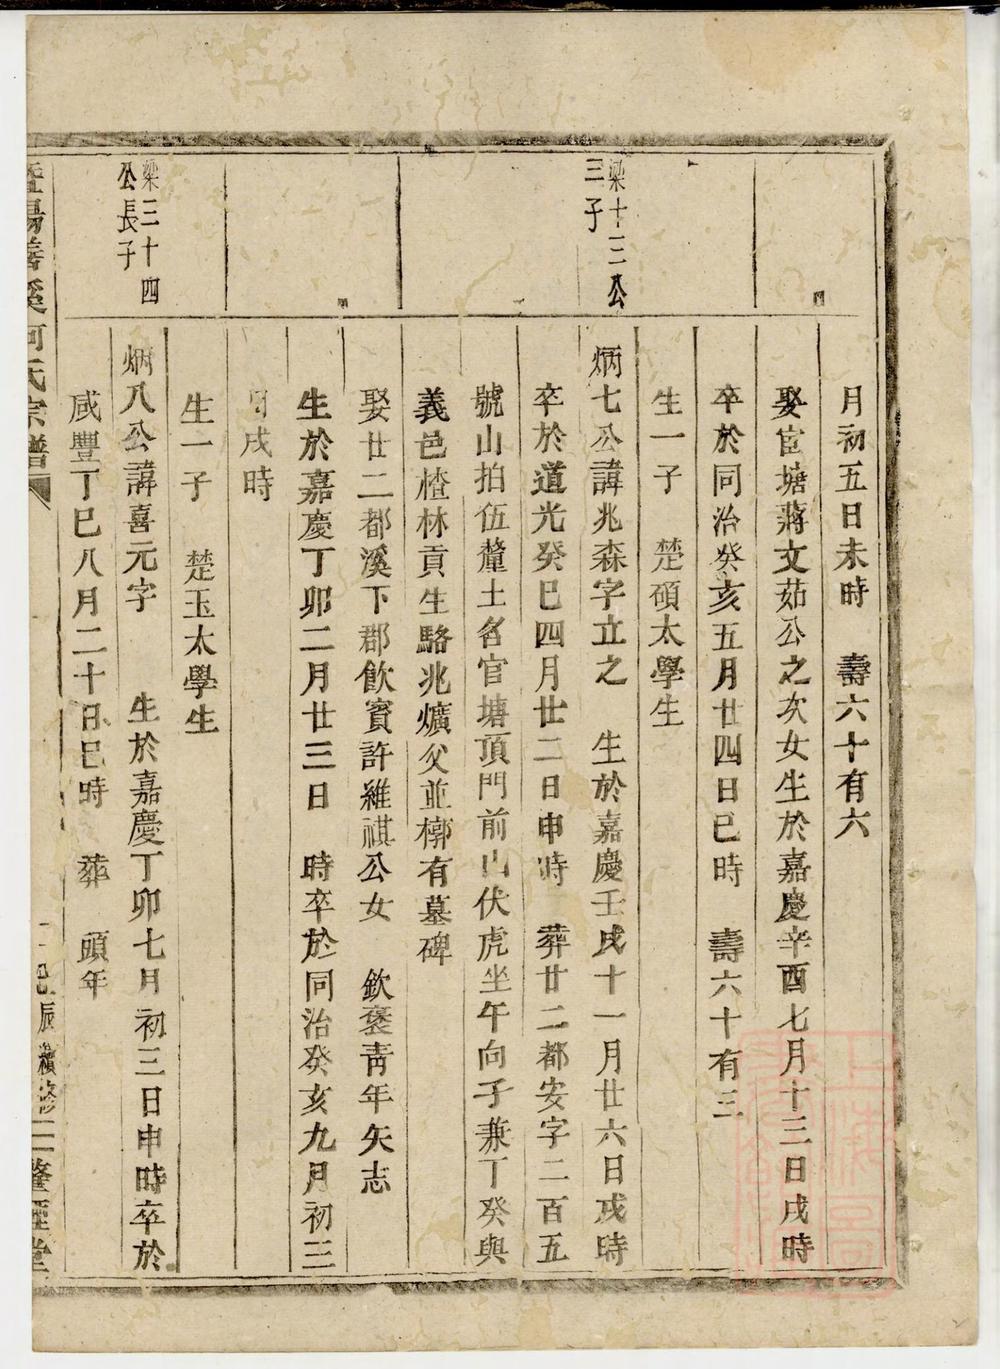 月初五日未時　壽六十有六
娶官塘蔣文茹公之次女生於嘉慶辛酉七月十三日戌時
卒於同治癸亥五月廿四日巳時　壽六十有三
生一子　楚碩太學生
梁十三公
三子
炳七公諱兆森字立之　生於嘉慶壬戌十一月廿六日戌時
卒於道光癸巳四月廿二日申時　葬廿二都安字二百五
號山拍伍釐土名官塘頂門前山伏虎坐午向子兼丁癸與
義邑楂林貢生駱兆爌父並槨有墓碑
娶廿二都溪下郡飲賓許維祺公女　欽褒靑年矢志
生於嘉慶丁卯二月廿三日　時卒於同治癸亥九月初三
日戌時
生一子　楚玉太學生
梁三十四
公長子
炳八公諱喜元字　　生於嘉慶丁卯七月初三日申時卒於
咸豐丁巳八月二十日巳時　葬　頭年
暨陽善溪何氏宗譜
辰續修